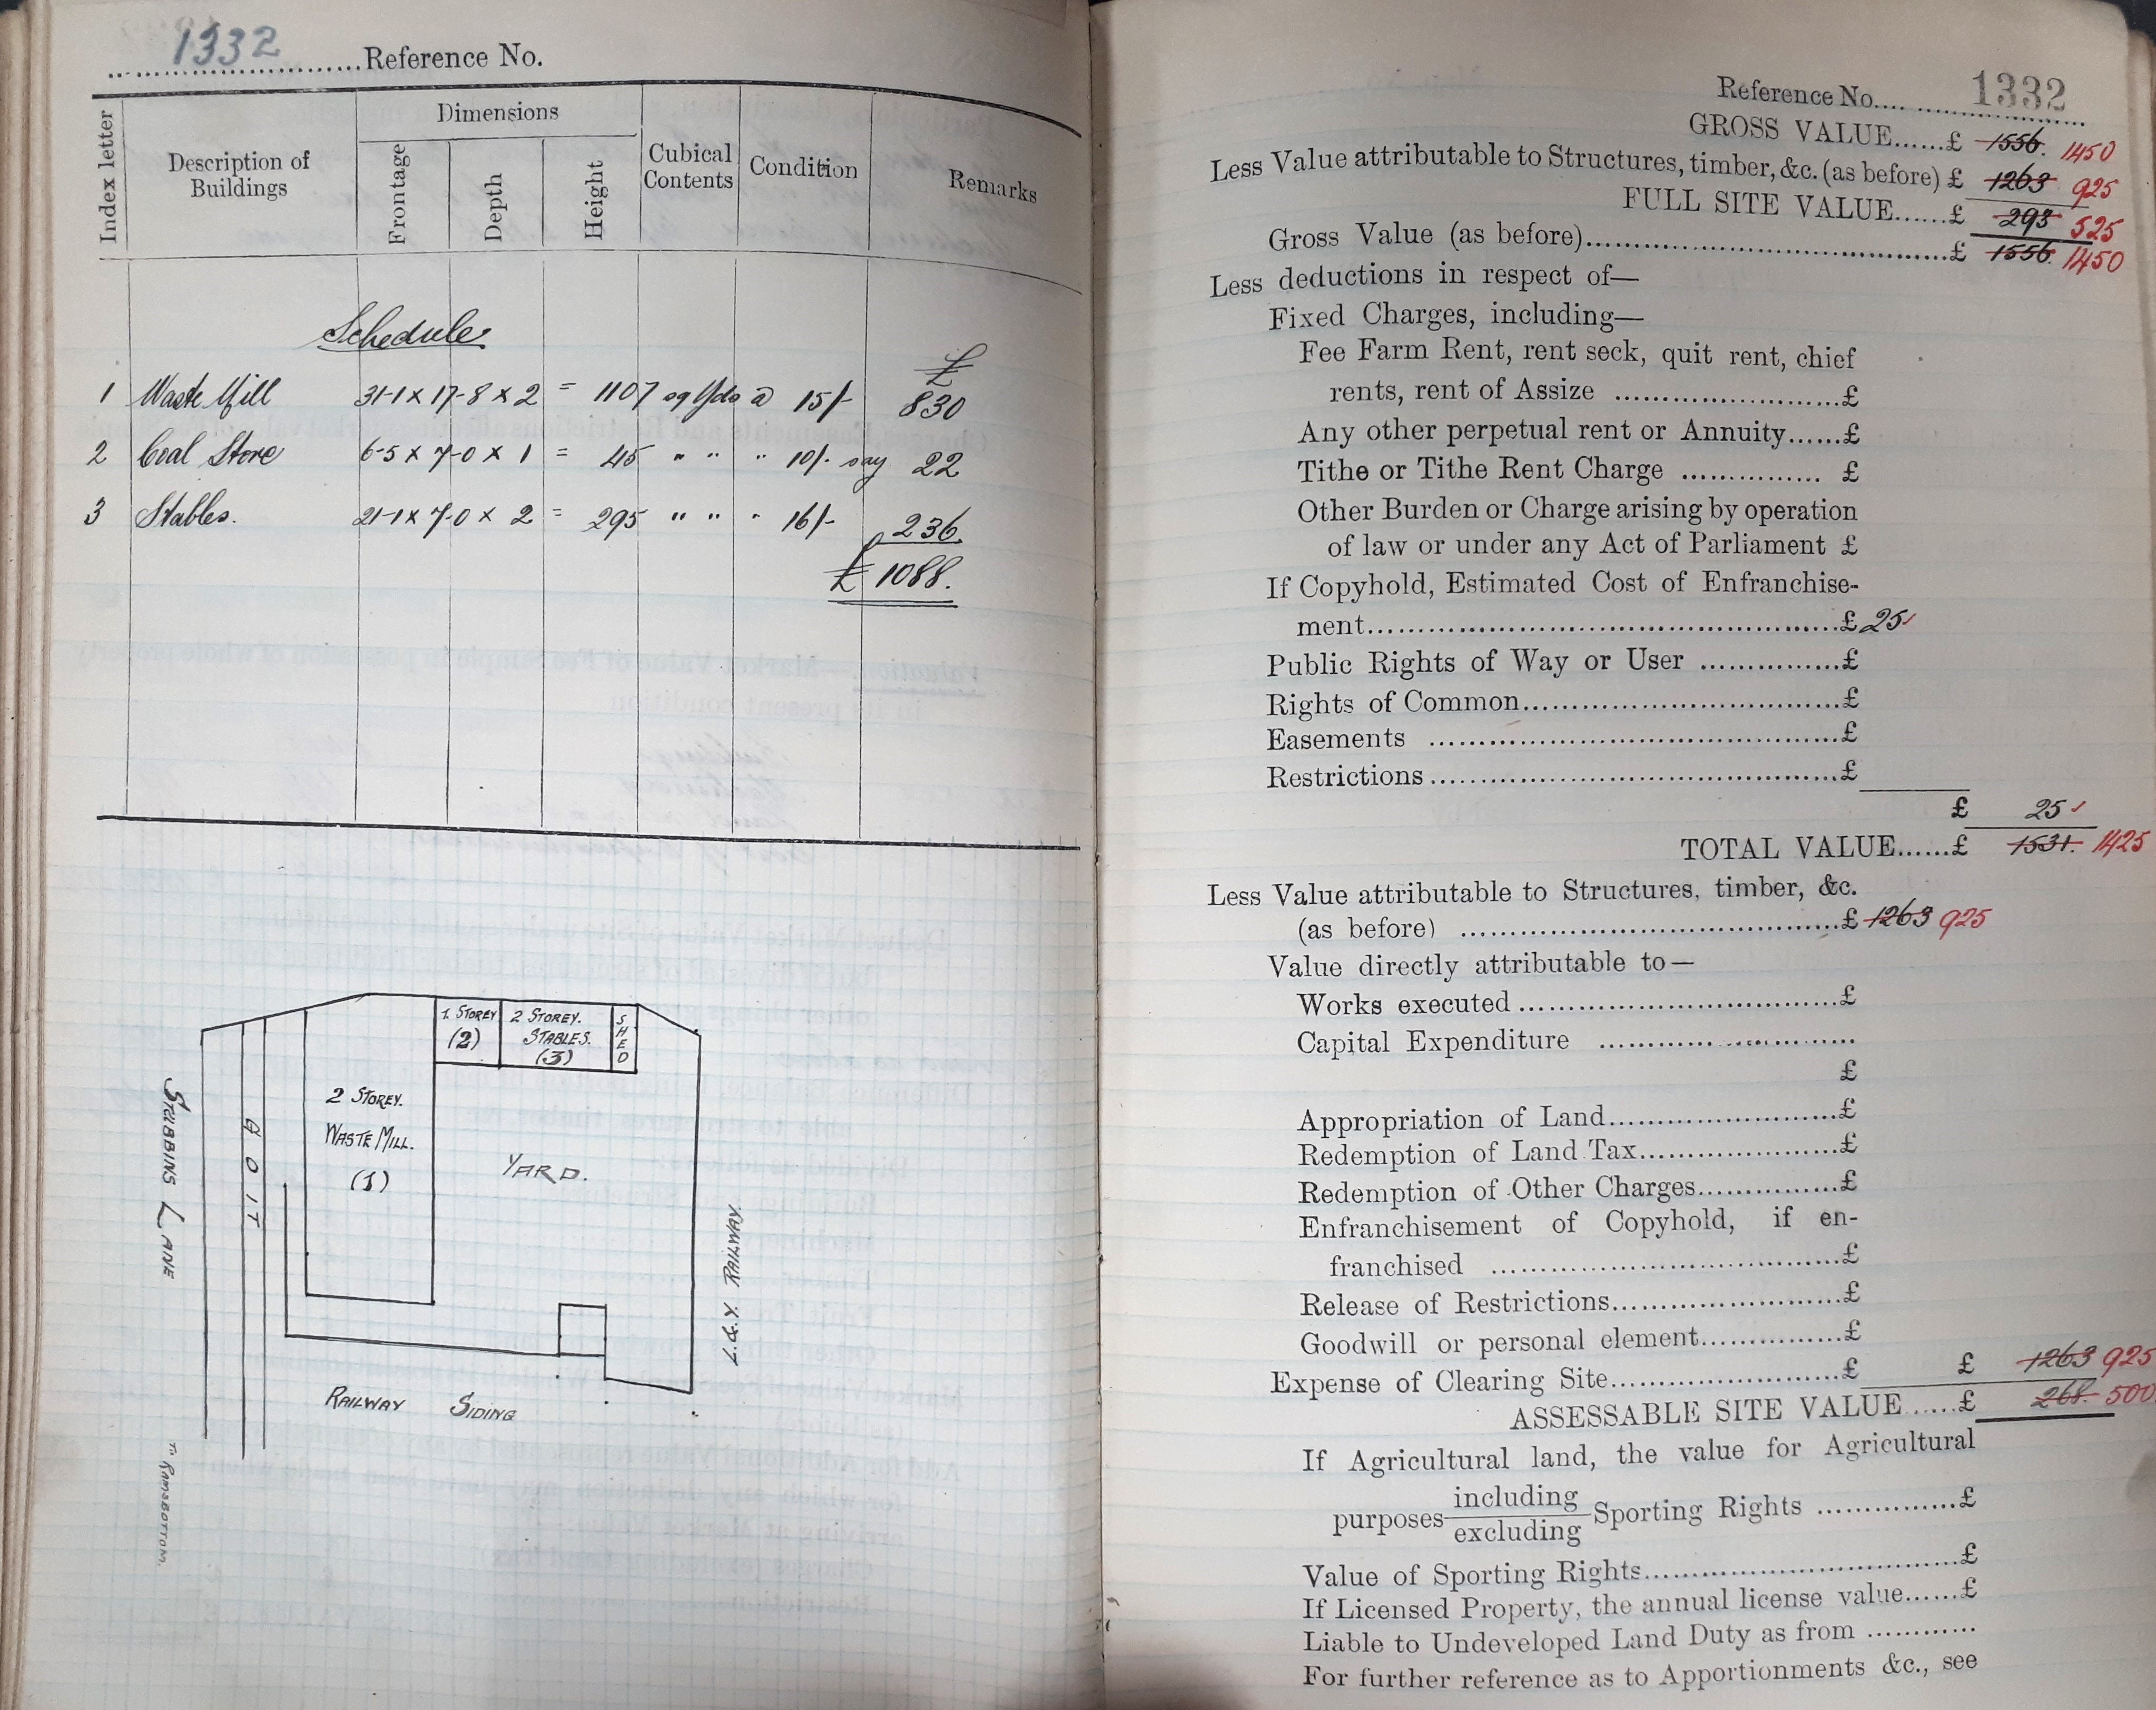 1332 Reference No.
Index letter
Description of Buildings
Dimensions
Frontage
Depth
Height
Cubical Contents
Condition
Remarks
Schedule
£
1 Waste Mill 31-1 x 17-8 x 2 = 1107 sq Yds @ 15/- 830
2 Coal Store 6-5 x 7-0 x 1 = 45 " " " 10/- say 22
3 Stables. 21-1 x 7-0 x 2 = 295 " " " 16/- 236.
£ 1088.
1. STOREY (2)
2 STOREY. STABLES. (3)
SHED
2 STOREY.
WASTE MILL.
(1)
YARD.
GOIT
STUBBINS LANE
L. & Y. RAILWAY.
RAILWAY SIDING
TO RAMSBOTTOM.
Reference No. 1332
GROSS VALUE......£ 1556. 1450
Less Value attributable to Structures, timber, &c. (as before) £ 1263 925
FULL SITE VALUE......£ 293 525
Gross Value (as before)......£ 1556. 1450
Less deductions in respect of—
Fixed Charges, including—
Fee Farm Rent, rent seck, quit rent, chief
rents, rent of Assize ......£
Any other perpetual rent or Annuity......£
Tithe or Tithe Rent Charge ......£
Other Burden or Charge arising by operation
of law or under any Act of Parliament £
If Copyhold, Estimated Cost of Enfranchise-
ment......£ 25
Public Rights of Way or User ......£
Rights of Common......£
Easements ......£
Restrictions......£
£ 25
TOTAL VALUE......£ 1531. 1425
Less Value attributable to Structures, timber, &c.
(as before) ......£ 1263 925
Value directly attributable to—
Works executed......£
Capital Expenditure ......
£
Appropriation of Land......£
Redemption of Land Tax......£
Redemption of Other Charges......£
Enfranchisement of Copyhold, if en-
franchised ......£
Release of Restrictions......£
Goodwill or personal element......£
Expense of Clearing Site......£ £ 1263 925
ASSESSABLE SITE VALUE ......£ 268. 500
If Agricultural land, the value for Agricultural
purposes including
excluding Sporting Rights ......£
Value of Sporting Rights......£
If Licensed Property, the annual license value......£
Liable to Undeveloped Land Duty as from ......
For further reference as to Apportionments &c., see